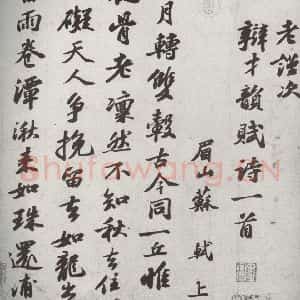 老謹次
辯才韻賦詩一首
眉山蘇軾上
月轉雙轂古今同一丘惟
骨老凜然不知秋去住
礙天人爭挽留去如龍出
雨卷潭湫來如珠還浦
Shufawang.CN